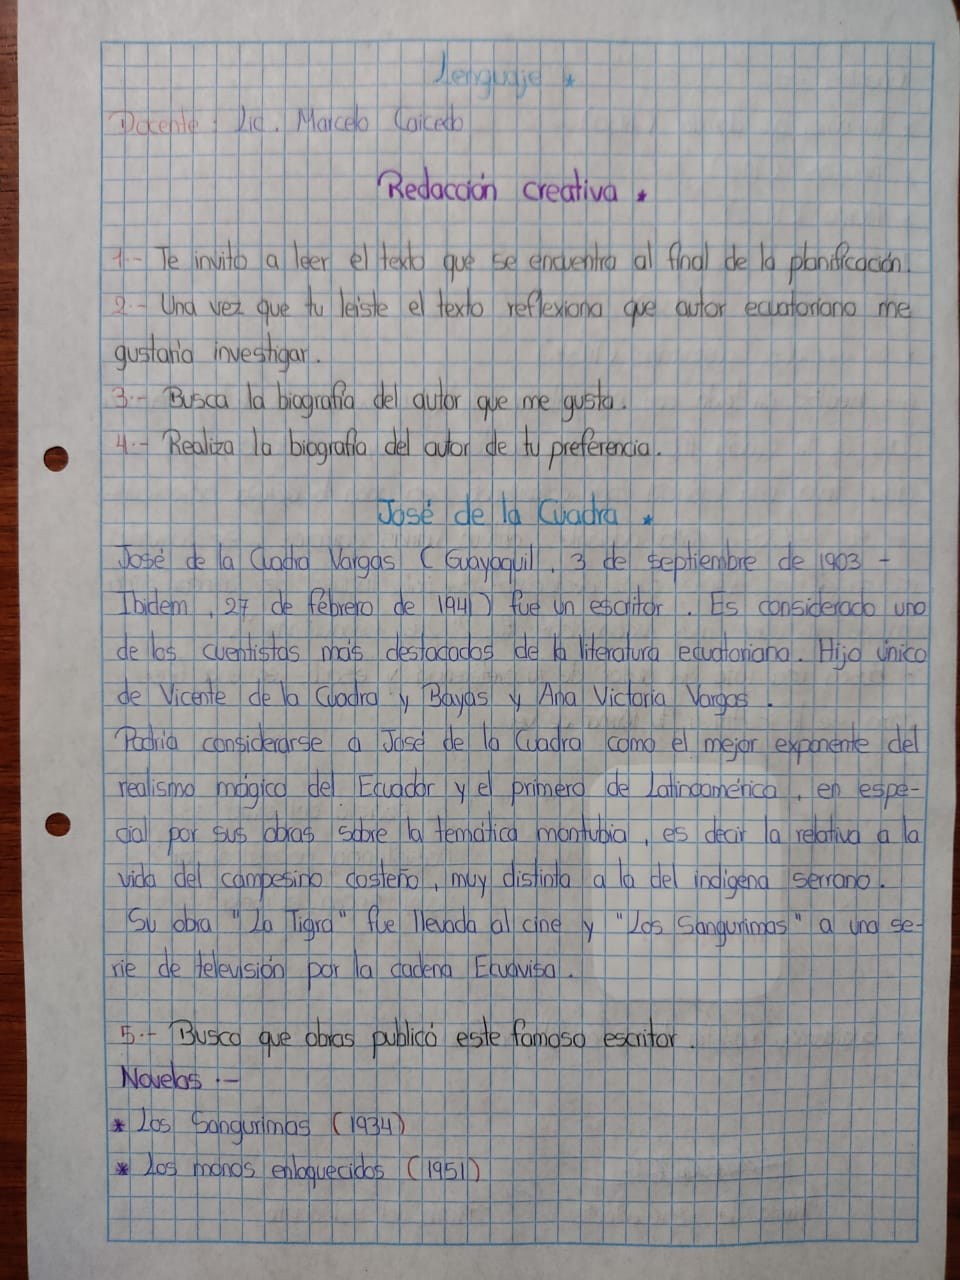 Lenguaje *
Docente : Lic. Marcelo Caicedo
Redacción creativa *
1.- Te invito a leer el texto que se encuentra al final de la planificación.
2.- Una vez que tu leiste el texto reflexiona que autor ecuatoriano me
gustaría investigar.
3.- Busca la biografía del autor que me gusta.
4.- Realiza la biografía del autor de tu preferencia.
José de la Cuadra *
José de la Cuadra Vargas ( Guayaquil, 3 de septiembre de 1903 -
Ibidem, 27 de febrero de 1941) fue un escritor. Es considerado uno
de los cuentistas más destacados de la literatura ecuatoriana. Hijo único
de Vicente de la Cuadra y Bayas y Ana Victoria Vargas.
Podría considerarse a José de la Cuadra como el mejor exponente del
realismo mágico del Ecuador y el primero de Latinoamérica, en espe-
cial por sus obras sobre la temática montubia, es decir la relativa a la
vida del campesino costeño, muy distinta a la del indígena serrano.
Su obra "La Tigra" fue llevada al cine y "Los Sangurimas" a una se-
rie de televisión por la cadena Ecuavisa.
5.- Busco que obras publicó este famoso escritor.
Novelas .-
* Los Sangurimas (1934)
* Los monos enloquecidos (1951)